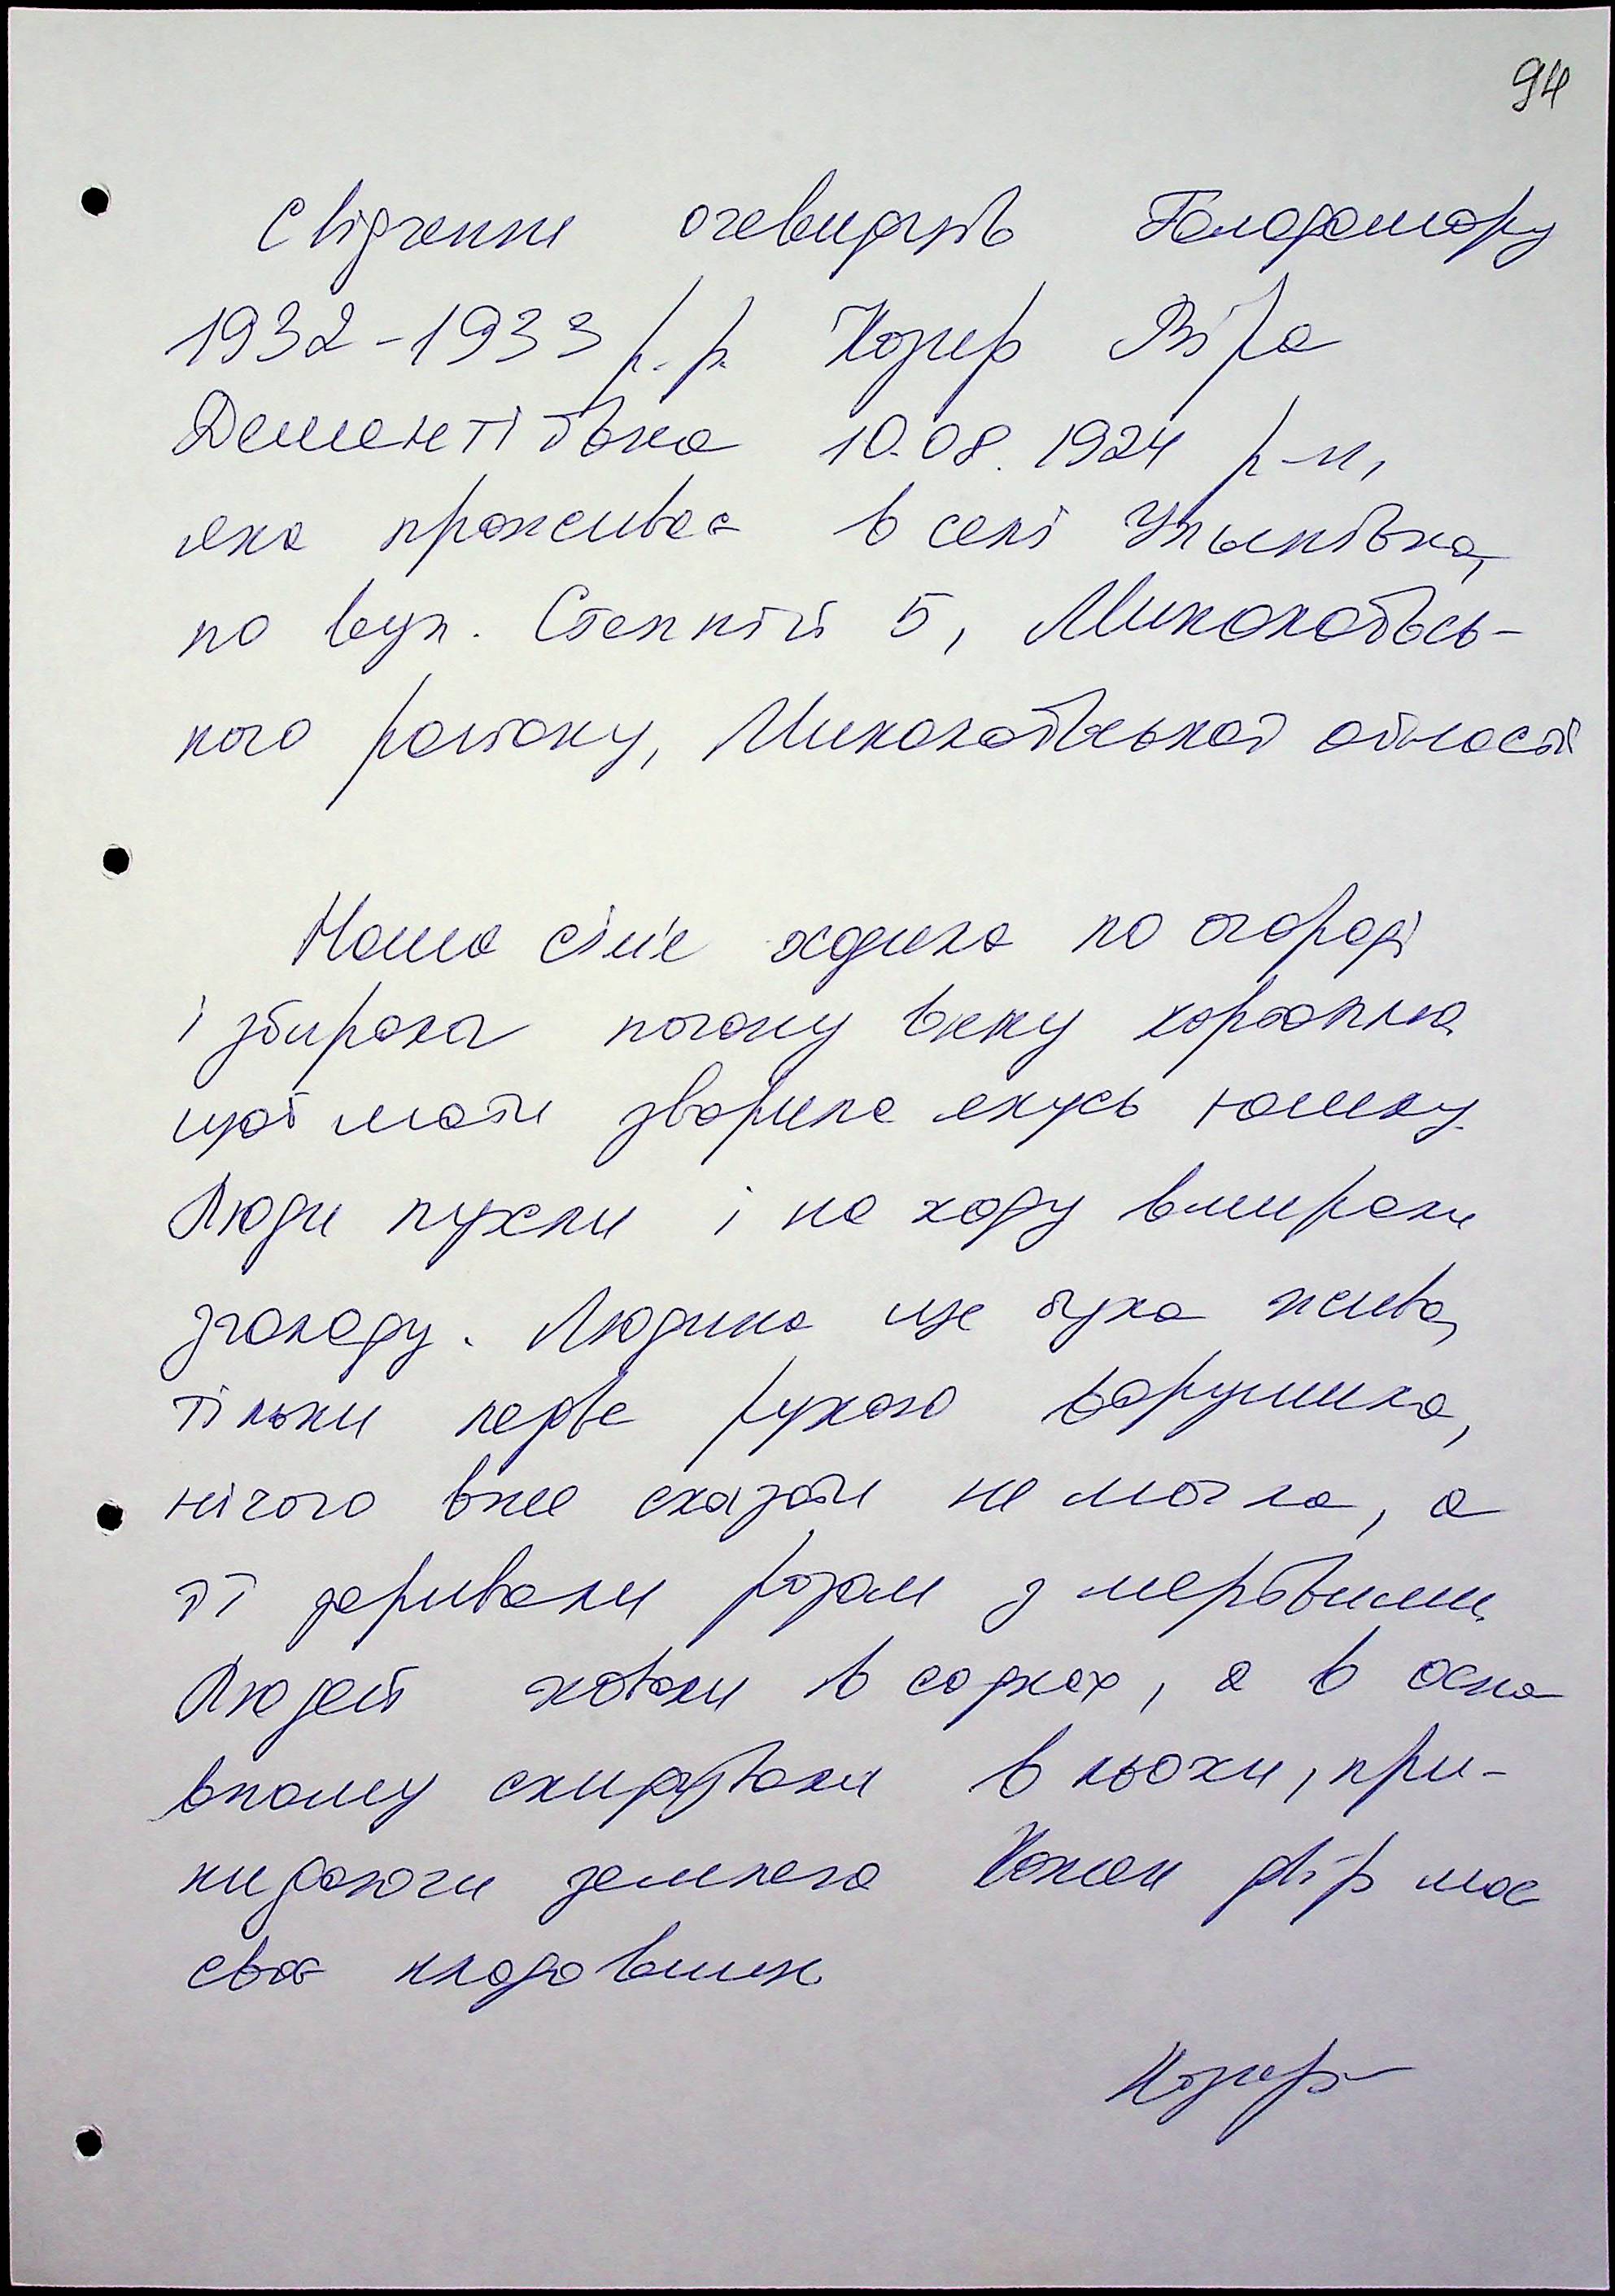 94
Свідчення очевидців Голодомору
1932-1933 р.р. Козир Віра
Дементіївна 10.08.1924 р-н,
яка проживає в селі Ульянівка,
по вул. Степній 5, Миколаївсь-
кого району, Миколаївської області
Наша сім'я ходила по огороді
і збирала погану вжу картоплю
щоб мати зварила якусь юшку.
Люди пухли і на ходу вмирали
зголоду. Людина ще була жива,
тільки ледве рукою ворушила,
нічого вже сказати не могла, а
її заривали разом з мертвими.
Людей ховали в садках, а в осно
вному скидували в льохи, при-
кидаючи землею Кожен двір має
своє кладовище.
Козир